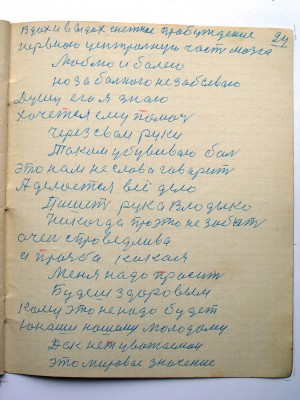 24
Вдох и выдох снежное пробуждение
нервную центральную часть мозга
Люблю и болею
но за болного не забываю
Душу его я знаю
хочется ему помоч
через свои руки
Таком убиваю бол
это нам не слова говорит
А делается всё дело
Пишет рука Владыко
Никогда про это не забыт
очен справедлива
и прозба какая
Меня надо просит
Будеш здоровым
Кому это не надо будет
Юноши нашему молодому
Дск нет уважаемой
это мировое значение